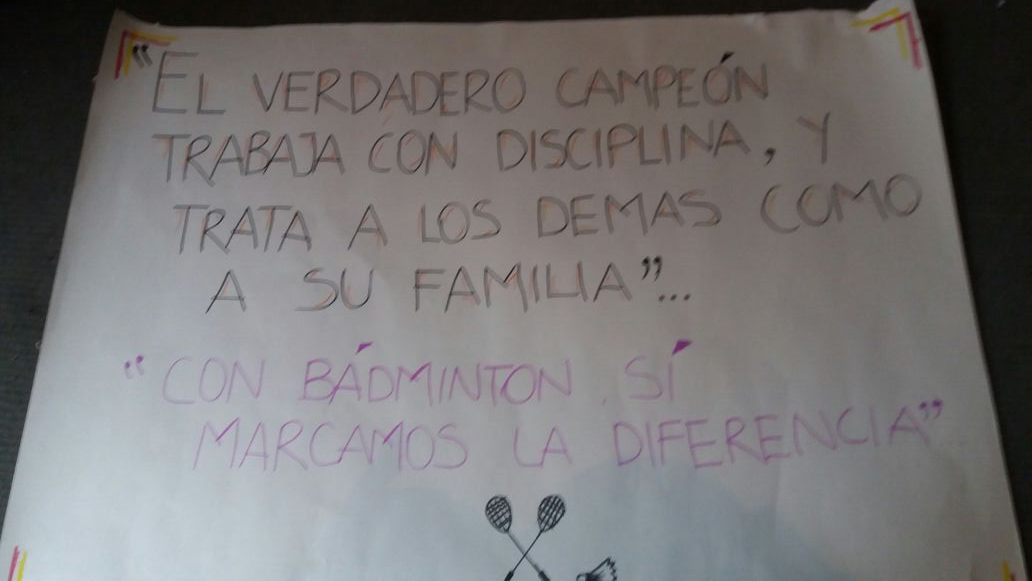 "EL VERDADERO CAMPEÓN
TRABAJA CON DISCIPLINA, Y
TRATA A LOS DEMAS COMO
A SU FAMILIA"...
"CON BÁDMINTON, SÍ
MARCAMOS LA DIFERENCIA"